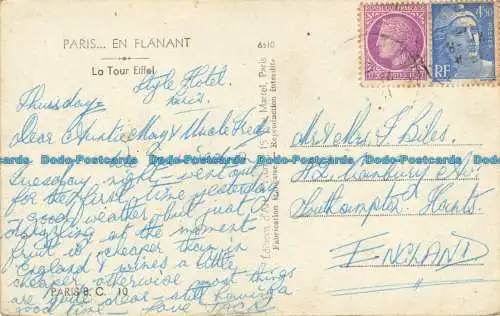 PARIS... EN FLANANT
La Tour Eiffel
6510
Style Hotel.
Paris.
Thursday
Dear Auntie May & Uncle Fred
Tuesday night - went out
for the first time yesterday
- good weather but just a
at the moment
fruit is cheaper than in
England & wines a little
cheaper otherwise most things
are quite dear - still having a
good time - love
PARIS B. C. 10
Marcel, Paris
Reproduction Interdite
Editions
Fabrication
4F50
RF
Mr & Mrs F Biles.
Av.
Southampton Hants.
ENGLAND
Dodo-Postcards Dodo-Postcards Dodo-Postcards Dodo-Postcards